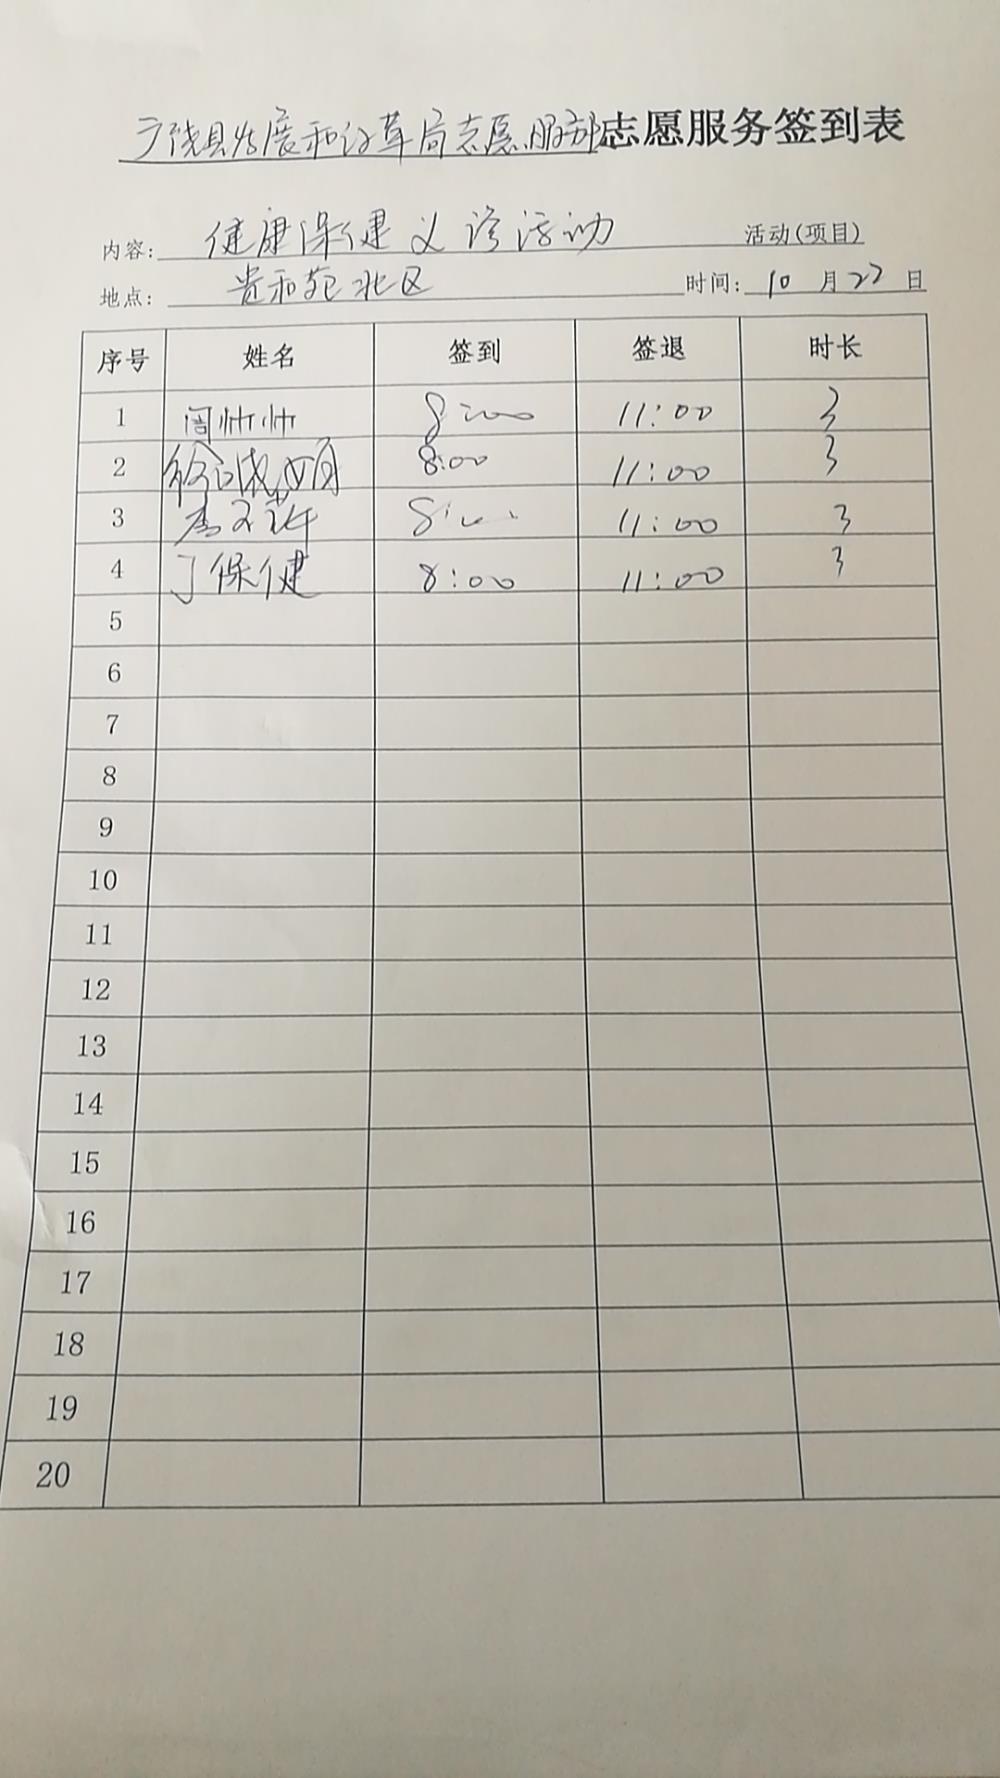 广饶县发展和改革局志愿服务队志愿服务签到表
内容: 健康保健义诊活动 活动(项目)
地点: 贵和苑北区 时间: 10 月 22 日
序号 姓名 签到 签退 时长
1 闫帅帅 8:00 11:00 3
2 徐 8:00 11:00 3
3 李 8:00 11:00 3
4 丁保健 8:00 11:00 3
5
6
7
8
9
10
11
12
13
14
15
16
17
18
19
20